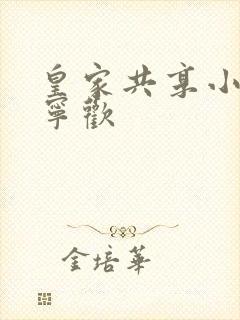 皇家共享小
寧歡
金培華